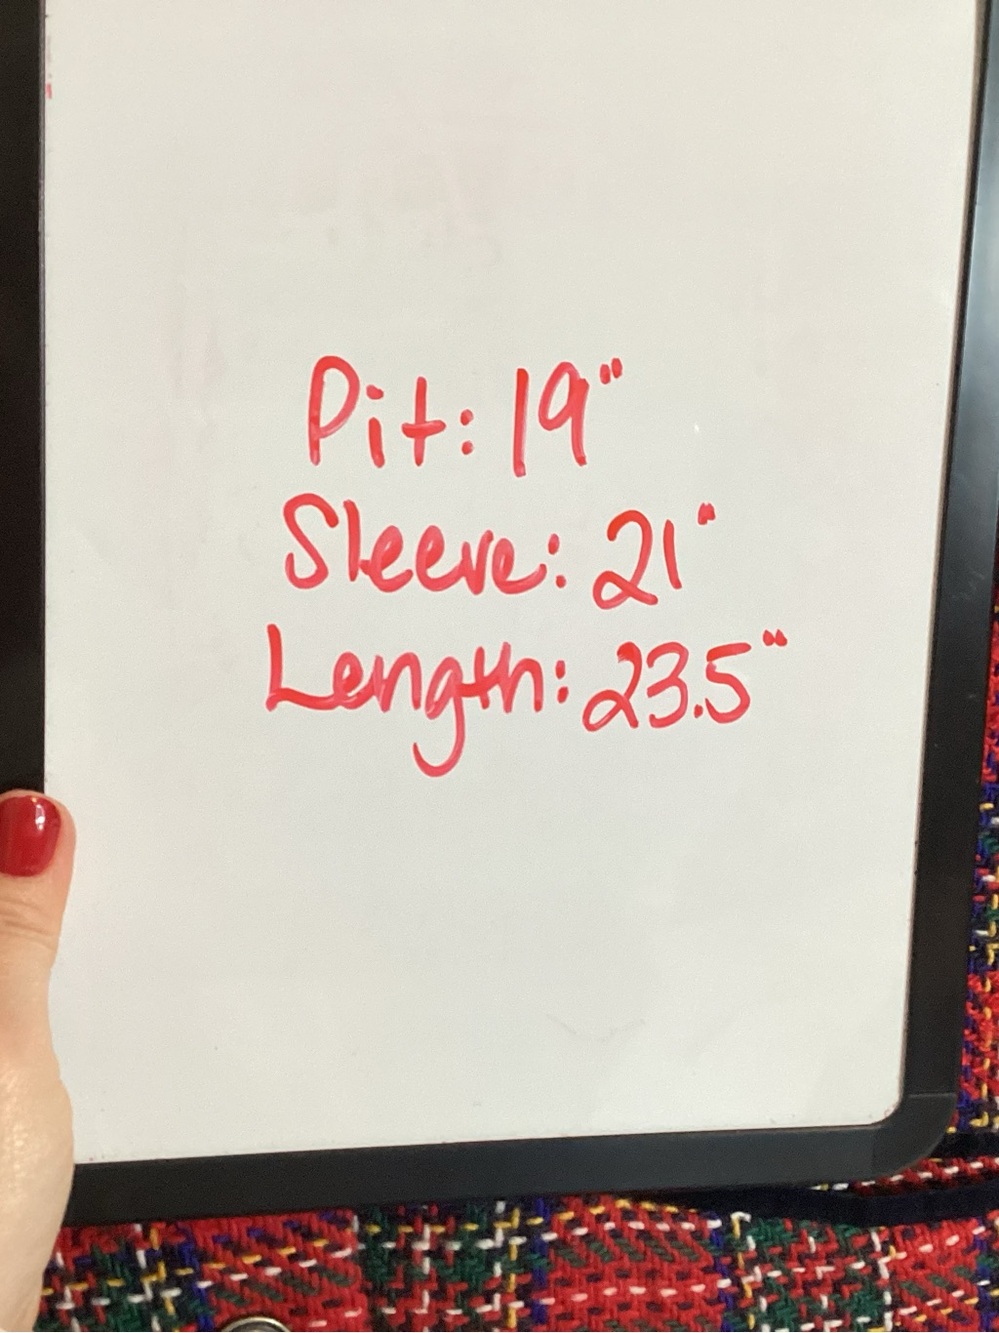 Pit: 19"
Sleeve: 21"
Length: 23.5"